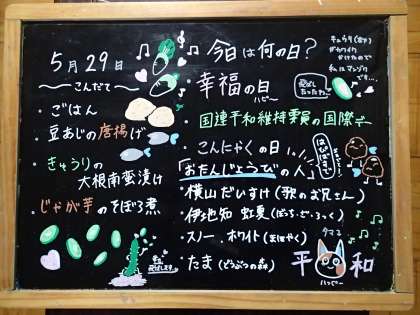 5月29日
～こんだて～
・ごはん
・豆あじの唐揚げ
・きゅうりの
大根南蛮漬け
・じゃが芋のそぼろ煮
今日は何の日?
・幸福の日
ハピー
・国連平和維持要員の国際デー
・こんにゃくの日
「おたんじょうびの人」
・横山だいすけ(歌のお兄さん)
・伊地知 虹夏(ぼっち・ざ・ろっく)
・スノー ホワイト(まほやく)
・たま(どうぶつの森)
キュウリ(部下)
がカワイク
かけたので
私はマンゾク
です…
はっぴばーすでー
タマ3
平
和
ハッピー